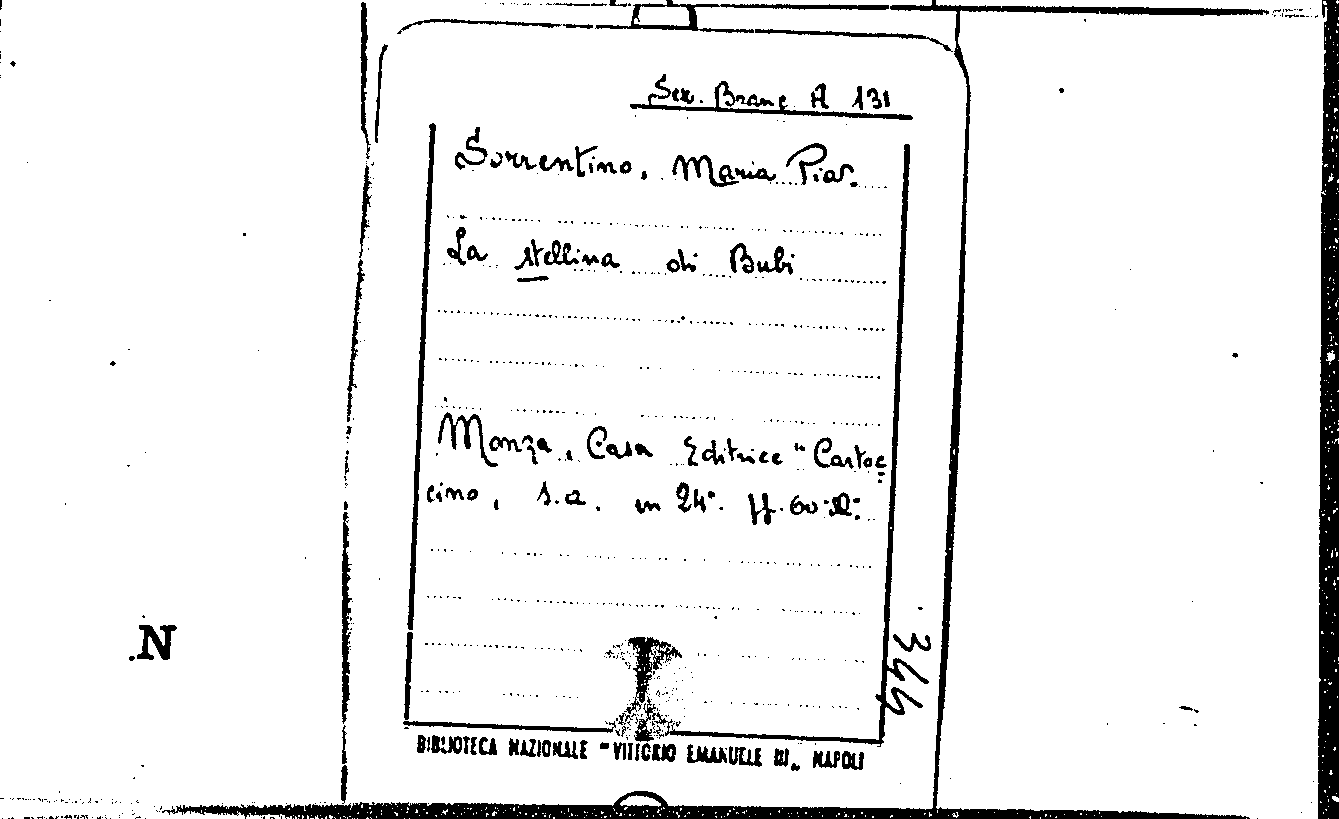 Sez. Branc A 131
Sorrentino, Maria Pia.
La stellina di Bubi
Monza, Casa Editrice "Cartoc
cino, s.a. in 24°. ff. 60
344
N
BIBLIOTECA NAZIONALE "VITTORIO EMANUELE III„ NAPOLI